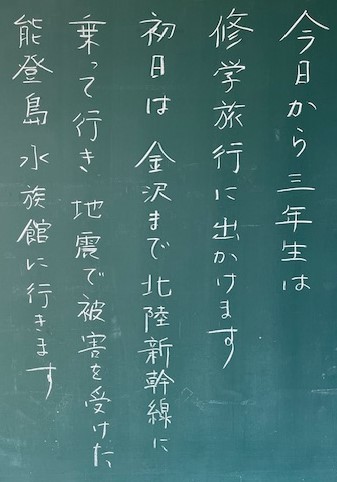 今日から三年生は
修学旅行に出かけます
初日は 金沢まで北陸新幹線に
乗って行き 地震で被害を受けた
能登島水族館に行きます